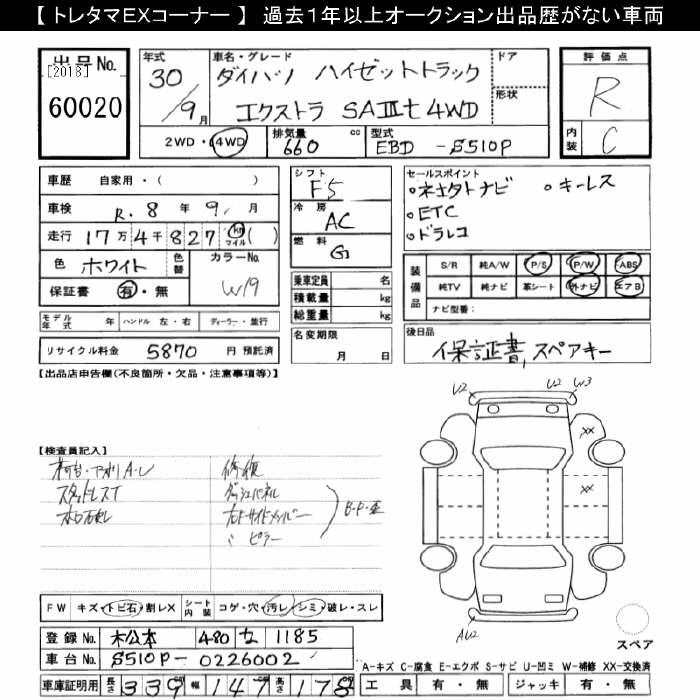 【 トレタマEXコーナー 】 過去1年以上オークション出品歴がない車両
出品No.
[2018]
60020
年式
30
9月
車名・グレード
ダイハツ ハイゼットトラック
エクストラ SAⅢt 4WD
ドア
形状
評価点
R
内装
C
2WD・4WD
排気量
660 cc
型式
EBD - S510P
車歴 自家用・( )
車検 R. 8 年 9 月
走行 17万4千827 km マイル ( )
色 ホワイト
色替
カラーNo.
W19
保証書 有・無
シフト
F5
冷房
AC
燃料
G
乗車定員 名
積載量 kg
総重量 kg
セールスポイント
・ネオタトナビ ・キーレス
・ETC
・ドラレコ
装備品
S/R 純A/W P/S P/W ABS
純TV 純ナビ 革シート 外ナビ エアB
ナビ型番:
モデル年式 年 ハンドル 左・右 ディーラー・並行
名変期限
月 日
後日品
保証書, スペアキー
リサイクル料金 5870 円 預託済
【出品店申告欄(不良箇所・欠品・注意事項等)】
U2 U2 W3
XX
XX
AU2
【検査員記入】
荷台・下廻りA・U
スタッドレスT
修復
ダッシュパネル
右F サイドメンバー
〃 ピラー
B・P・歪
FW キズ・トビ石・割レX シート内装 コゲ・穴・汚レ・シミ・破レ・スレ
登録No. 松本 480 な 1185
車台No. S510P- 0226002
スペア
A-キズ C-腐食 E-エクボ S-サビ U-凹ミ W-補修 XX-交換済
車庫証明用 長さ 339 幅 147 高さ 178
工具 有・無 ジャッキ 有・無